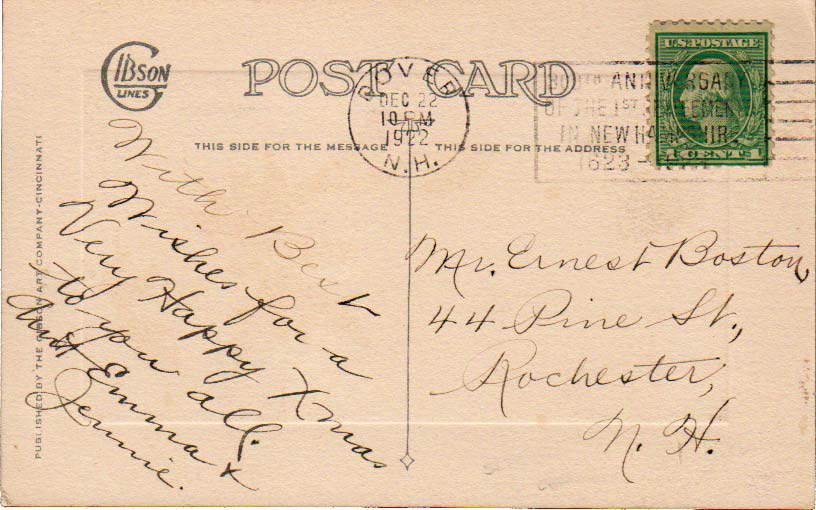 GIBSON
LINES
POST CARD
DOVER
DEC 22
10 PM
1922
N.H.
300TH ANNIVERSARY
OF THE 1ST SETTLEMENT
IN NEW HAMPSHIRE
1623 -
U.S. POSTAGE
1 CENTS 1
THIS SIDE FOR THE MESSAGE
THIS SIDE FOR THE ADDRESS
PUBLISHED BY THE GIBSON ART COMPANY-CINCINNATI
With Best
Wishes for a
Very Happy Xmas
to you all.
Aunt Emma +
Jennie.
Mr. Ernest Boston,
44 Pine St.,
Rochester,
N. H.